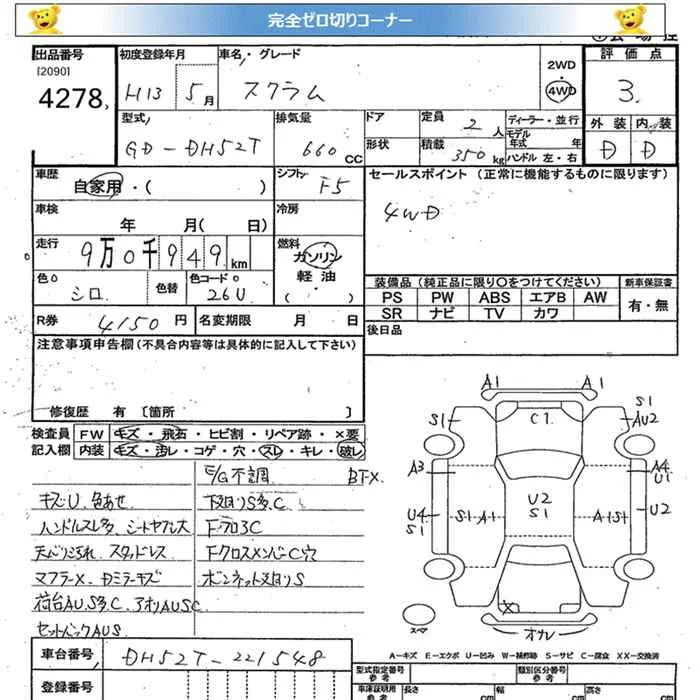 完全ゼロ切りコーナー
出品番号 初度登録年月 車名・グレード 2WD・4WD 評価点
[2090]
4278 H13 5月 スクラム 3
型式 排気量 ドア 定員 2人 ディーラー・並行 外装 内装
GD-DH52T 660CC 形状 積載 350kg モデル年式 年 D D
ハンドル 左・右
車歴 シフト F5 セールスポイント (正常に機能するものに限ります)
自家用・( ) 4WD
車検 冷房
年 月( 日)
走行 9万0千949km 燃料 ガソリン
軽油
( )
色0 シロ 色替 色コード0 26U
装備品 (純正品に限り〇をつけてください) 新車保証書
PS PW ABS エアB AW 有・無
SR ナビ TV カワ
R券 4150円 名変期限 月 日 後日品
注意事項申告欄 (不具合内容等は具体的に記入して下さい)
修復歴 有 [箇所 ]
検査員 FW キズ・飛石・ヒビ割・リペア跡・×要
記入欄 内装 キズ・汚レ・コゲ・穴・スレ・キレ・破レ
E/G不調 BTX
キズU 色あせ 下廻りS多C
ハンドルスレ多 シートヤブレ大 Fフロ3C
天バリ汚れ スタッドレス FクロスメンバーC穴
マフラーX DミラーキズS ボンネット裏廻りS
荷台AU.S多C アオリAUSC
セットバックAUS
A1 A1
S1 C1 S1
AU2
A3 A4
U1
U4
S1 S1 A1 U2
S1 A1S1 U2
X
スペア オカル
A－キズ E－エクボ U－凹み W－補修跡 S－サビ C－腐食 XX－交換済
車台番号 DH52T-221548
型式指定番号 参考 類別区分番号 参考
登録番号 車庫証明用 参考 長さ cm 幅 cm 高さ cm